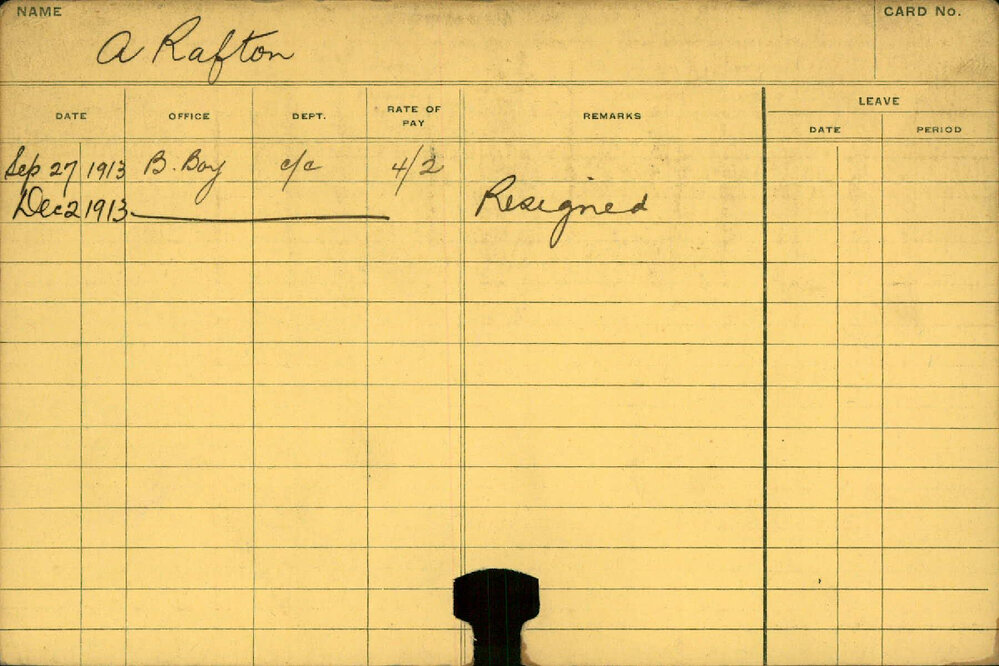 NAME
CARD No.
A Rafton
DATE OFFICE DEPT. RATE OF PAY REMARKS LEAVE
DATE PERIOD
Sep 27 1913 B. Boy c/c 4/2
Dec 2 1913 Resigned